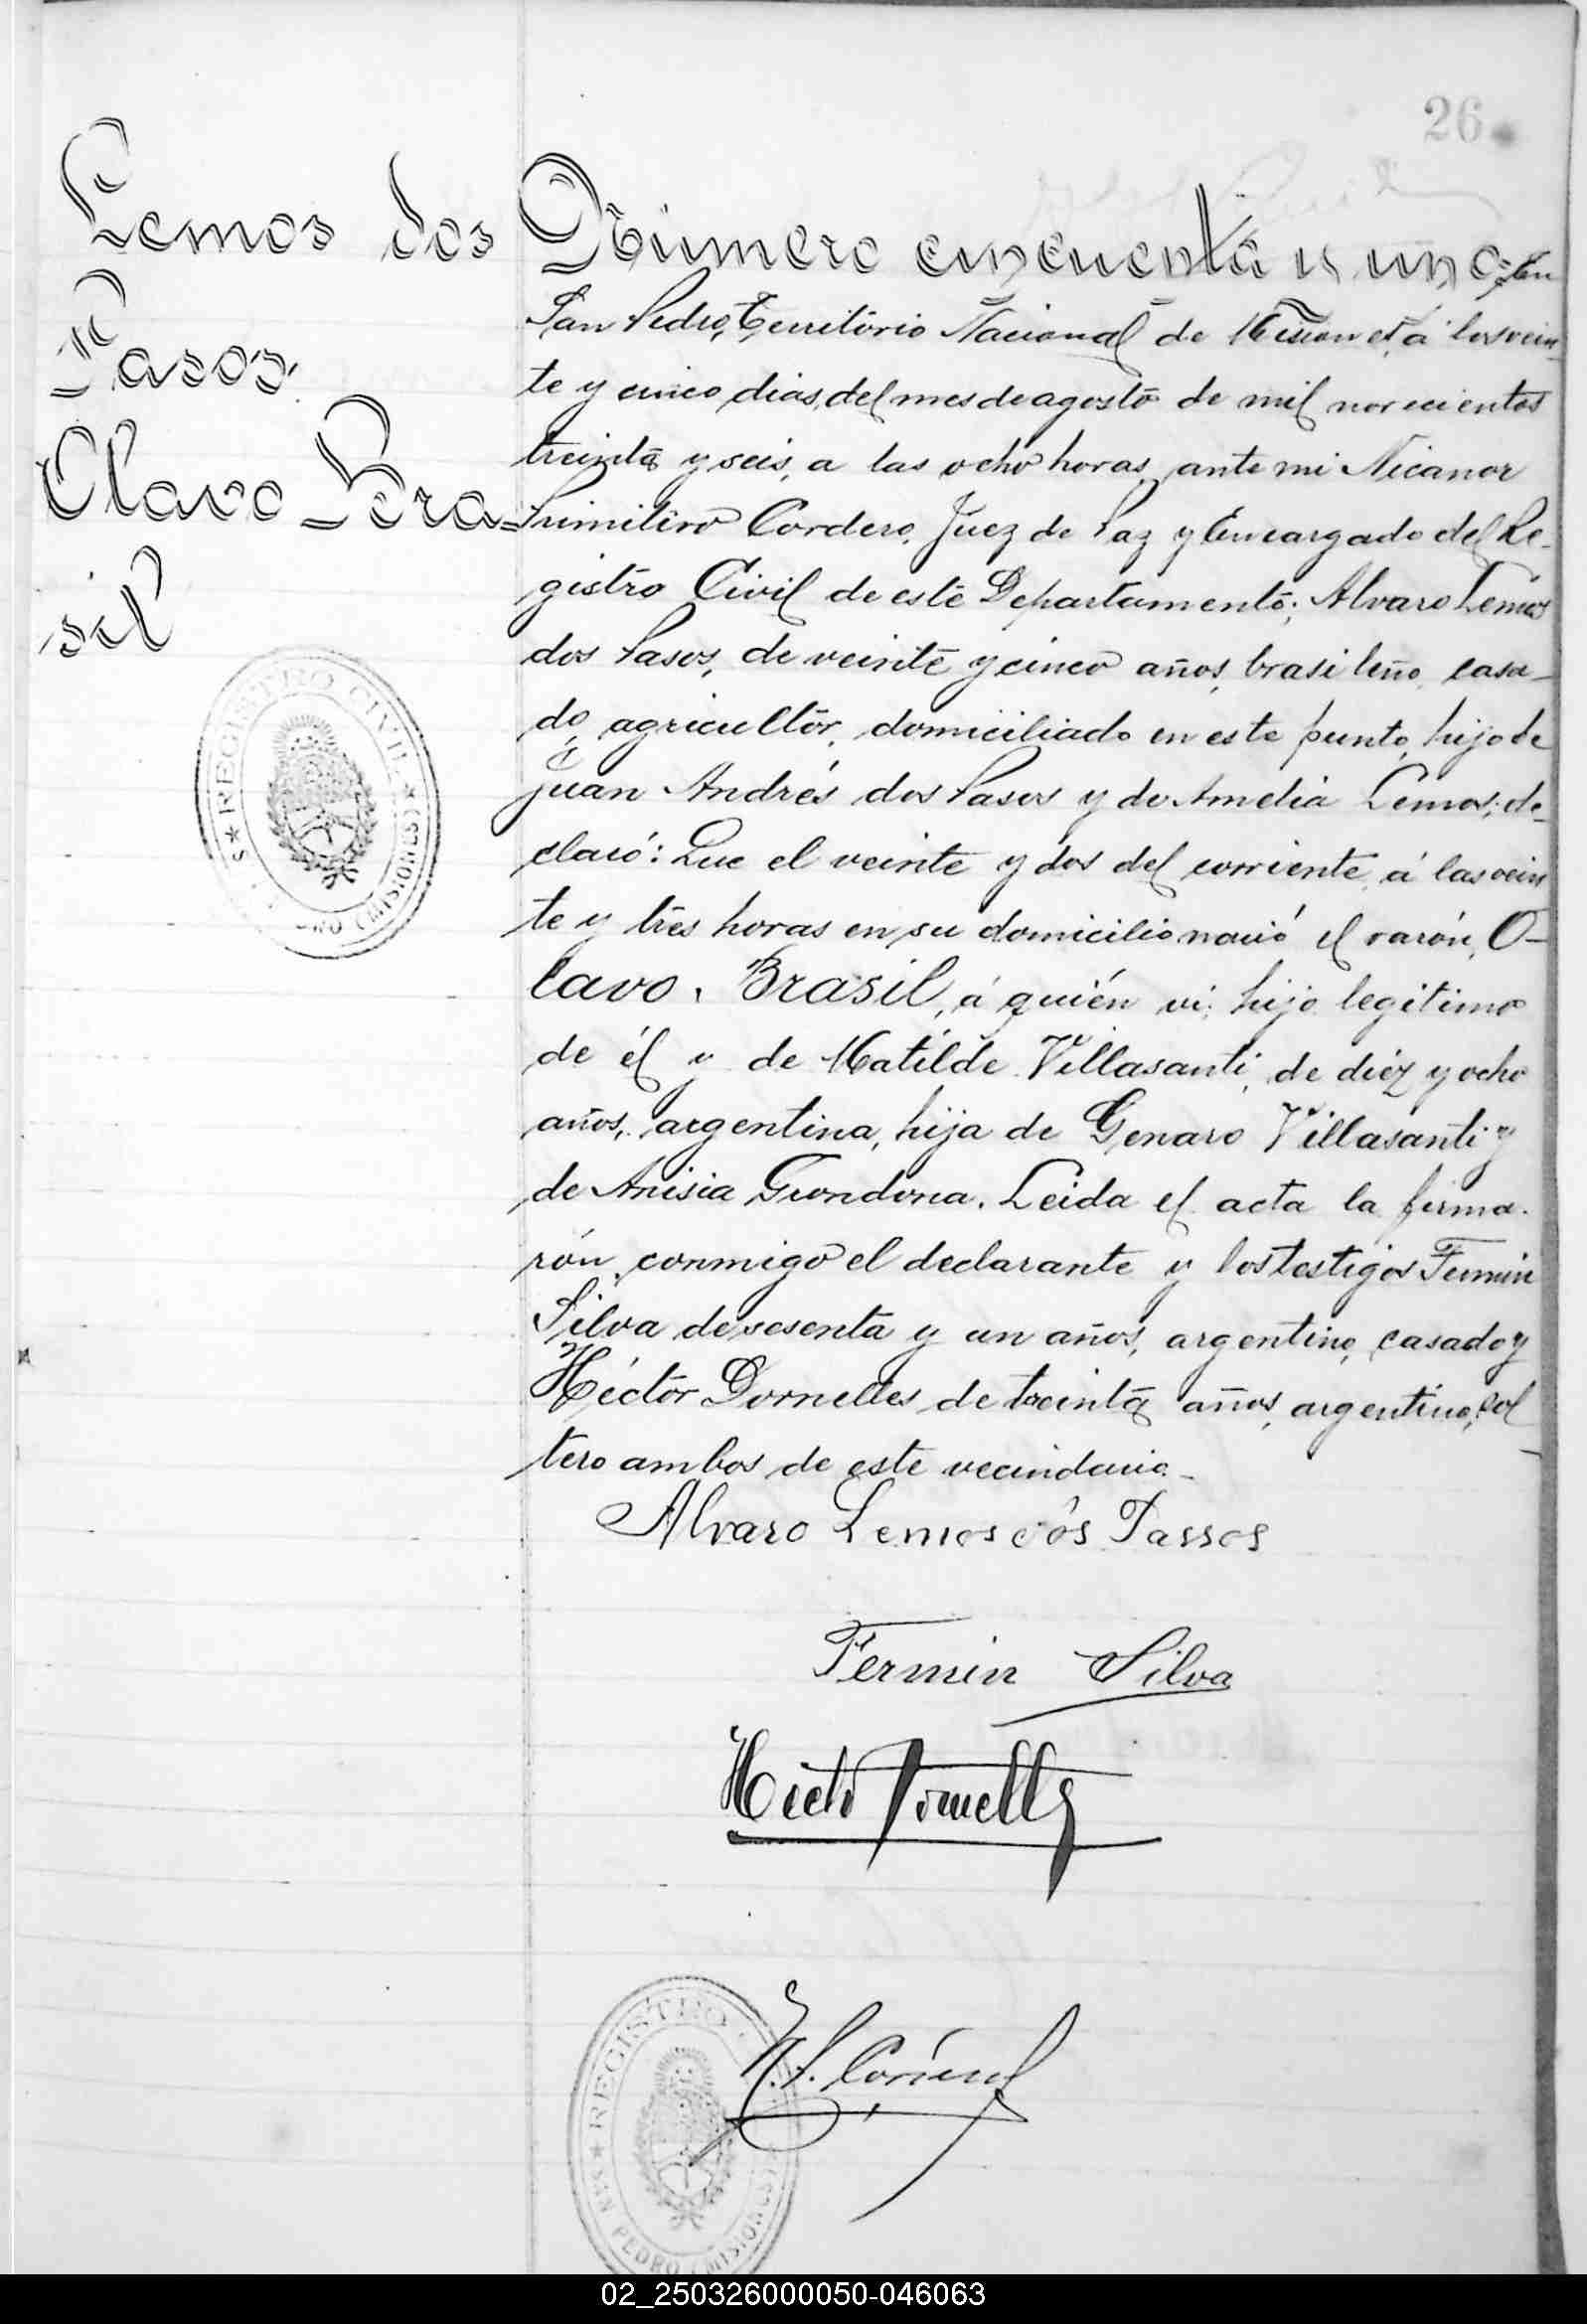 26
Lemos dos
Pasos,
Olavo Bra-
sil
Número cincuenta y uno: En
San Pedro, Territorio Nacional de Misiones, á los vein-
te y cinco dias, del mes de agosto de mil novecientos
treinta y seis, a las ocho horas, ante mi Nicanor
Primitivo Cordero, Juez de Paz y Encargado del Re-
gistro Civil de este Departamento; Alvaro Lemos
dos Pasos, de veinte y cinco años, brasileño, casa-
do, agricultor, domiciliado en este punto, hijo de
Juan Andrés dos Pasos y de Amelia Lemos; de-
claró: Que el veinte y dos del corriente, á las vein
te y tres horas en su domicilio nació el varón, O-
lavo, Brasil, á quién vi; hijo legitimo
de él y de Matilde Villasanti, de diéz y ocho
años, argentina, hija de Genaro Villasanti y
de Anisia Grondona. Leida el acta la firma-
rón, conmigo el declarante y los testigos Fermin
Silva de sesenta y un años, argentino, casado y
Héctor Dornelles de treinta años, argentino, sol
tero ambos de este vecindario.-
Alvaro Lemos dos Passos
Fermin Silva
Hécto Dornelles
REGISTRO CIVIL
(MISIONES)
REGISTRO
SAN PEDRO (MISIONES)
02_250326000050-046063